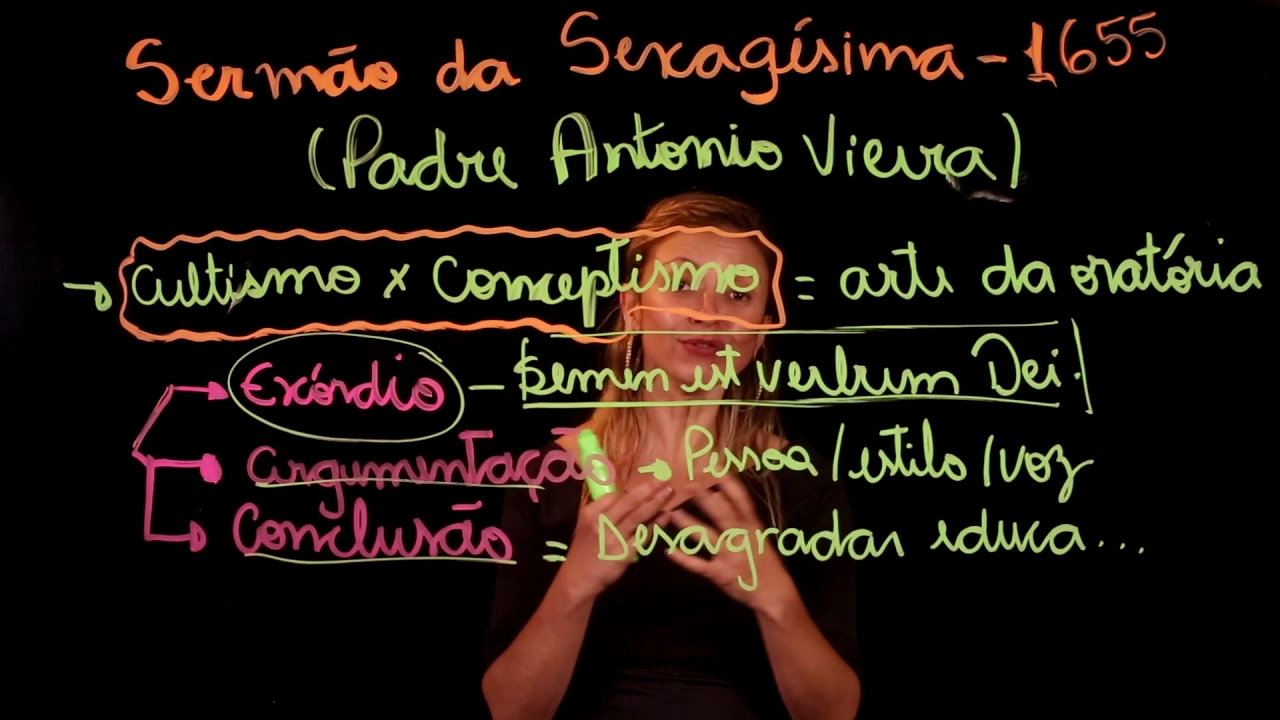 Sermão da Sexagésima - 1655
(Padre Antonio Vieira)
→ Cultismo x Conceptismo = arte da oratória
→ Exórdio - Semen est verbum Dei.
→ argumentação → Pessoa / estilo / voz
→ Conclusão = Desagradar educa...